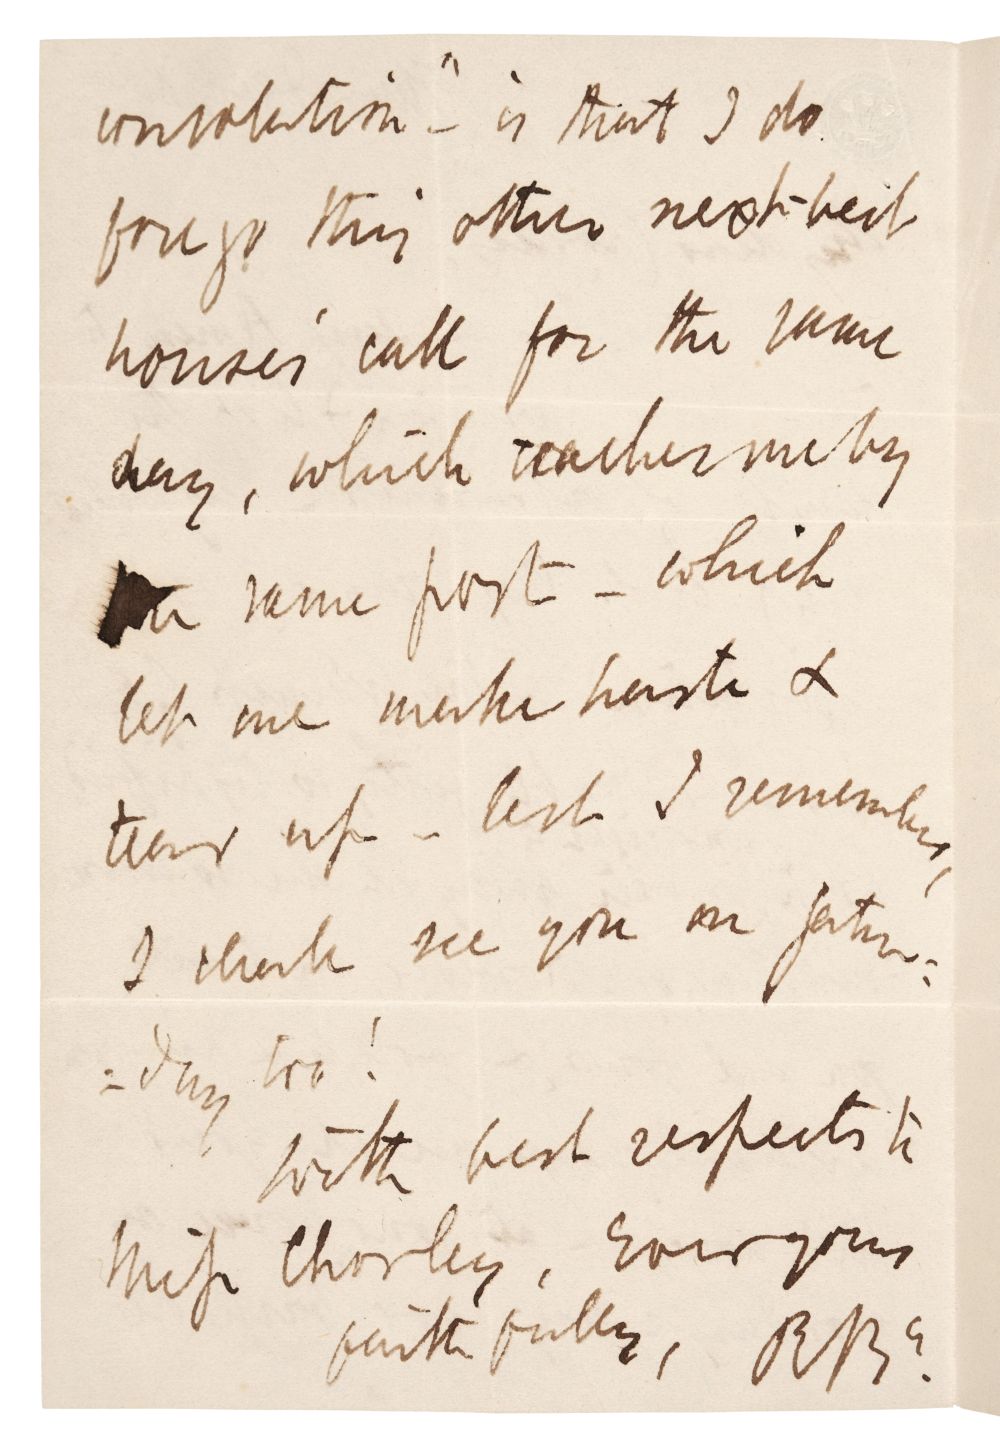 consolation" – is that I do
forego this other next-best
house's call for the same
day, which reaches me by
same post – which
let me make haste &
tear up – lest I remember,
I shall see you on Satur=
=day too!
With best respects to
Miss Chorley, Ever yours
faithfully, RB